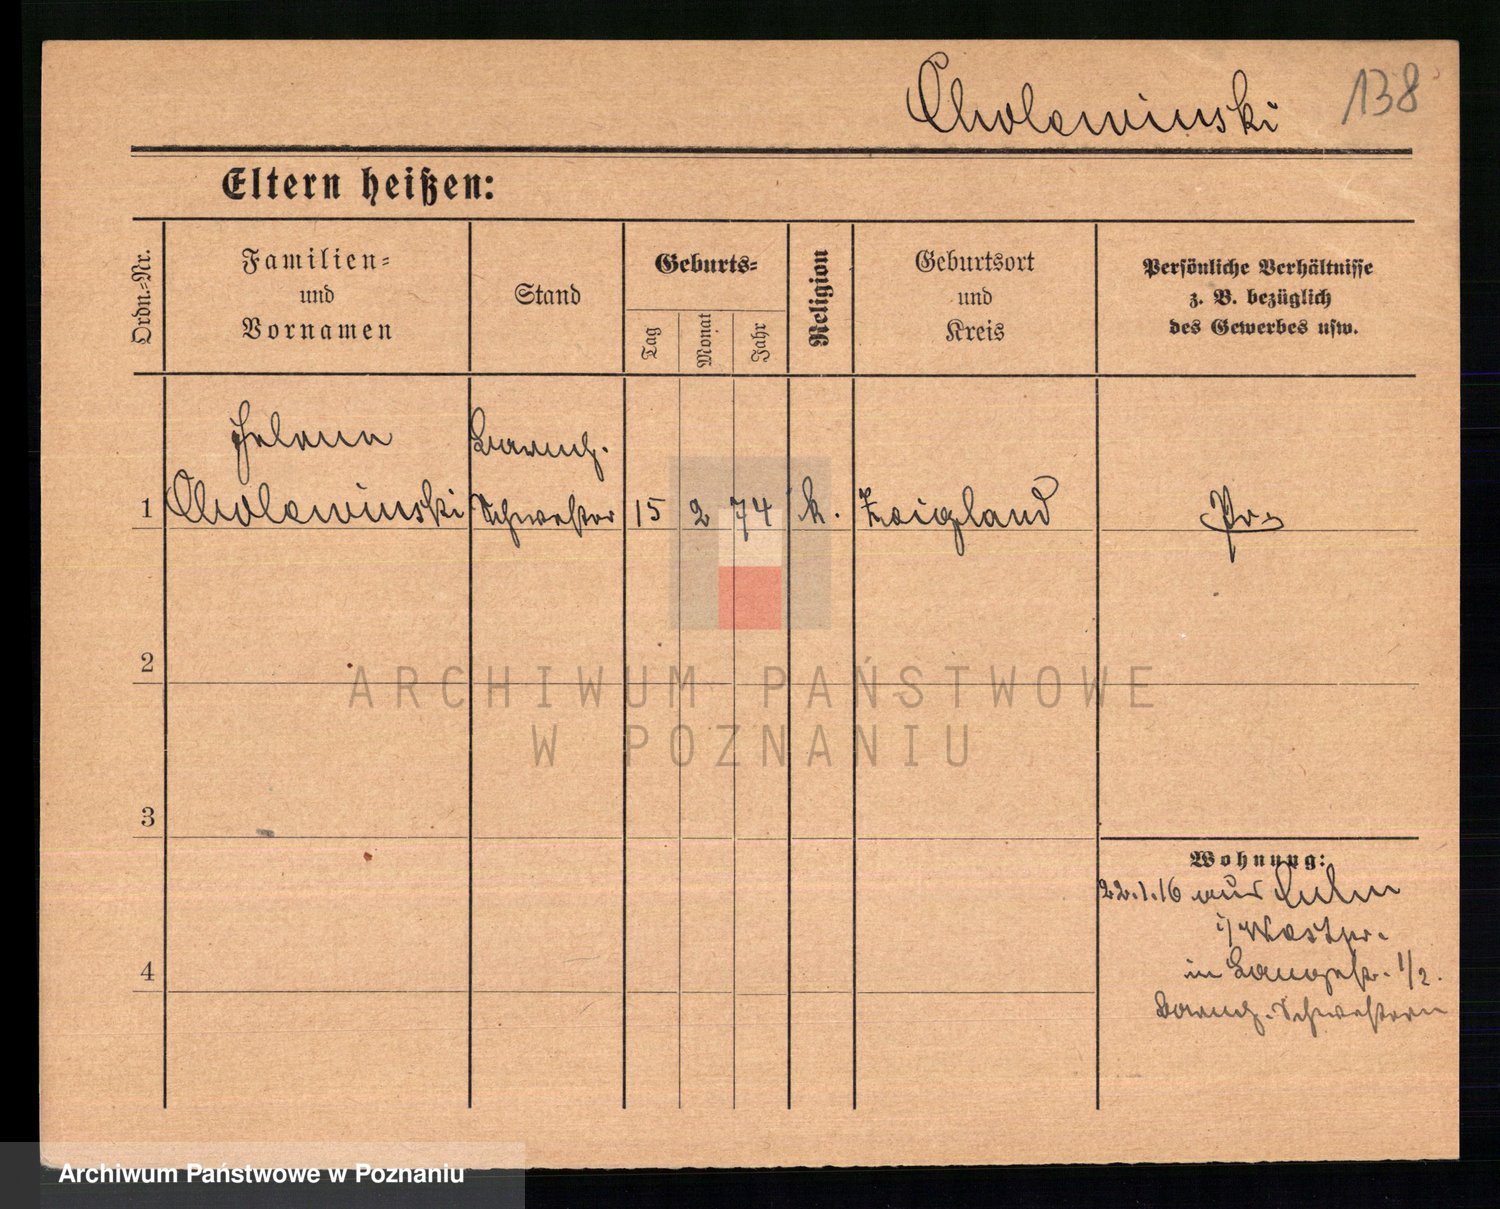 Cholewinski 138
Eltern heißen:
Ordn.-Nr.
Familien-
und
Vornamen
Stand
Geburts-
Tag
Monat
Jahr
Religion
Geburtsort
und
Kreis
Persönliche Verhältnisse
z. B. bezüglich
des Gewerbes usw.
Helena Barmh.
1 Cholewinski Schwester 15 2 74 k. Pr.
2
3
4
Wohnung:
22.1.16 aus Culm
i/Westpr.
in Langestr. 1/2.
Barmh. Schwestern
ARCHIWUM PAŃSTWOWE
W POZNANIU
Archiwum Państwowe w Poznaniu